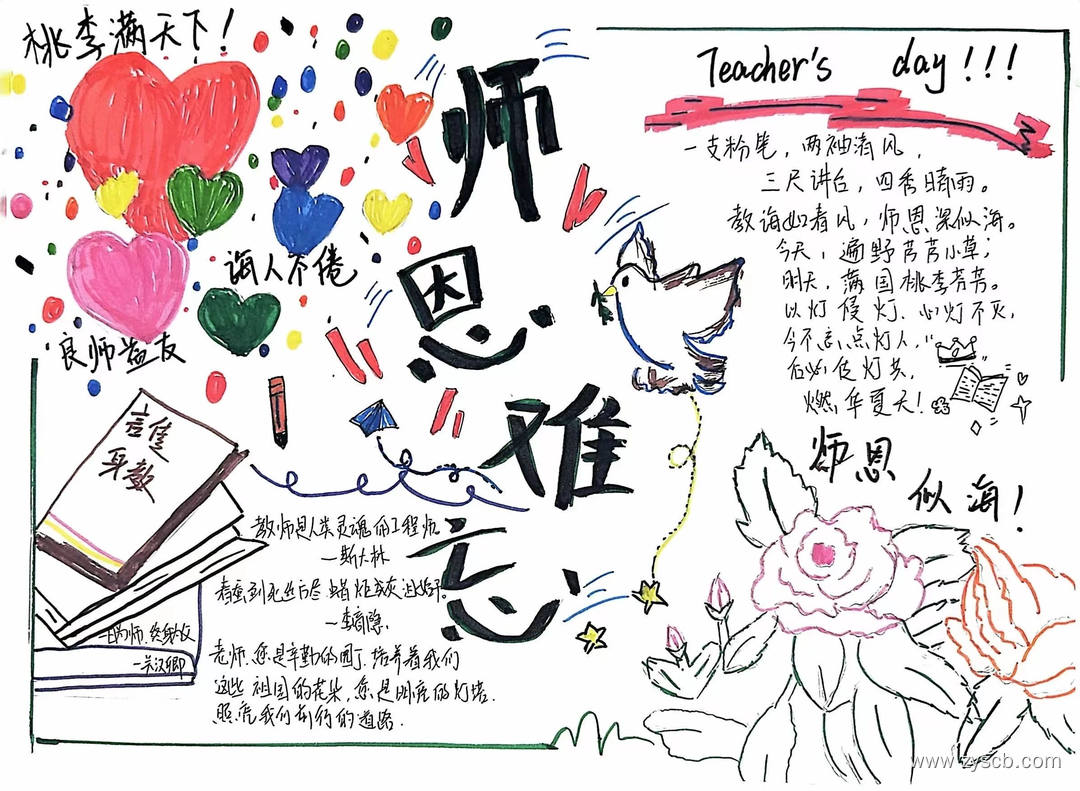 桃李满天下！
Teacher's day!!!
师恩难忘
一支粉笔，两袖清风，
三尺讲台，四季晴雨。
教诲如春风，师恩深似海。
今天，遍野芦芦小草；
明天，满园桃李芳芳。
以灯传灯，心灯不灭，
今不点灯人，
后必使灯共，
燃华夏天！
诲人不倦
良师益友
教师是人类灵魂的工程师。
—斯大林
春蚕到死丝方尽 蜡炬成灰泪始干。
—李商隐。
老师，您是辛勤的园丁，培养着我们
这些祖国的花朵，您是明亮的灯塔，
照亮我们前行的道路。
一日为师，终身为父
—关汉卿
师恩
似海！
www.zyscb.com